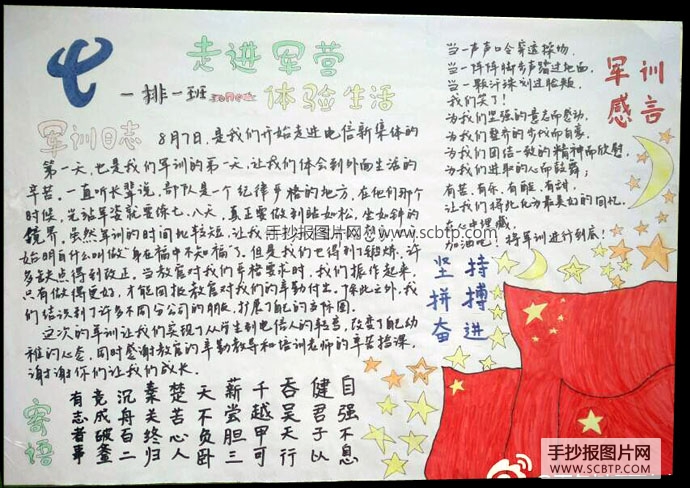 走进军营
一排一班
体验生活
军训日志
8月7日,是我们开始走进电信新集体的
第一天,也是我们军训的第一天,让我们体会到外面生活的
辛苦。一直听长辈说,部队是一个纪律严格的地方,在他们那个
时候,光站军姿就要练七、八天,真正要做到站如松,坐如钟的
境界,虽然军训的时间比较短,让我
始明白什么叫做"身在福中不知福"了。但是我们也得到了锻炼,许
多缺点得到改正。当教官对我们严格要求时,我们振作起来,
只有做得更好,才能回报教官对我们的辛勤付出。除此之外,我
们结识到了许多不同分公司的朋友,扩展了自己的交际圈。
这次的军训让我们实现了从学生到电信人的转变,改变了自己幼
稚的心态,同时感谢教官的辛勤教导和培训老师的辛苦授课,
谢谢你们让我们成长。
军训感言
当一声声口令穿透操场,
当一阵阵脚步声踏过地面,
当一颗汗珠划过脸颊,
我们笑了!
为我们坚强的意志而感动,
为我们整齐的步伐而自豪,
为我们团结一致的精神而欣慰
为我们进取的心而鼓舞;
有苦,有乐,有酸,有甜,
让我们将此化为最美好的回忆,
在心中埋藏。
加油吧!将军训进行到底!
坚持
拼搏
奋进
寄语
自强不息
健君子以
吞吴天行
千越甲可
薪尝胆三
天不负卧
楚苦心人
秦关终归
沉舟百二
竞成破釜
有志者事
手抄报图片网 www.scbtp.com
手抄报图片网
WWW.SCBTP.COM